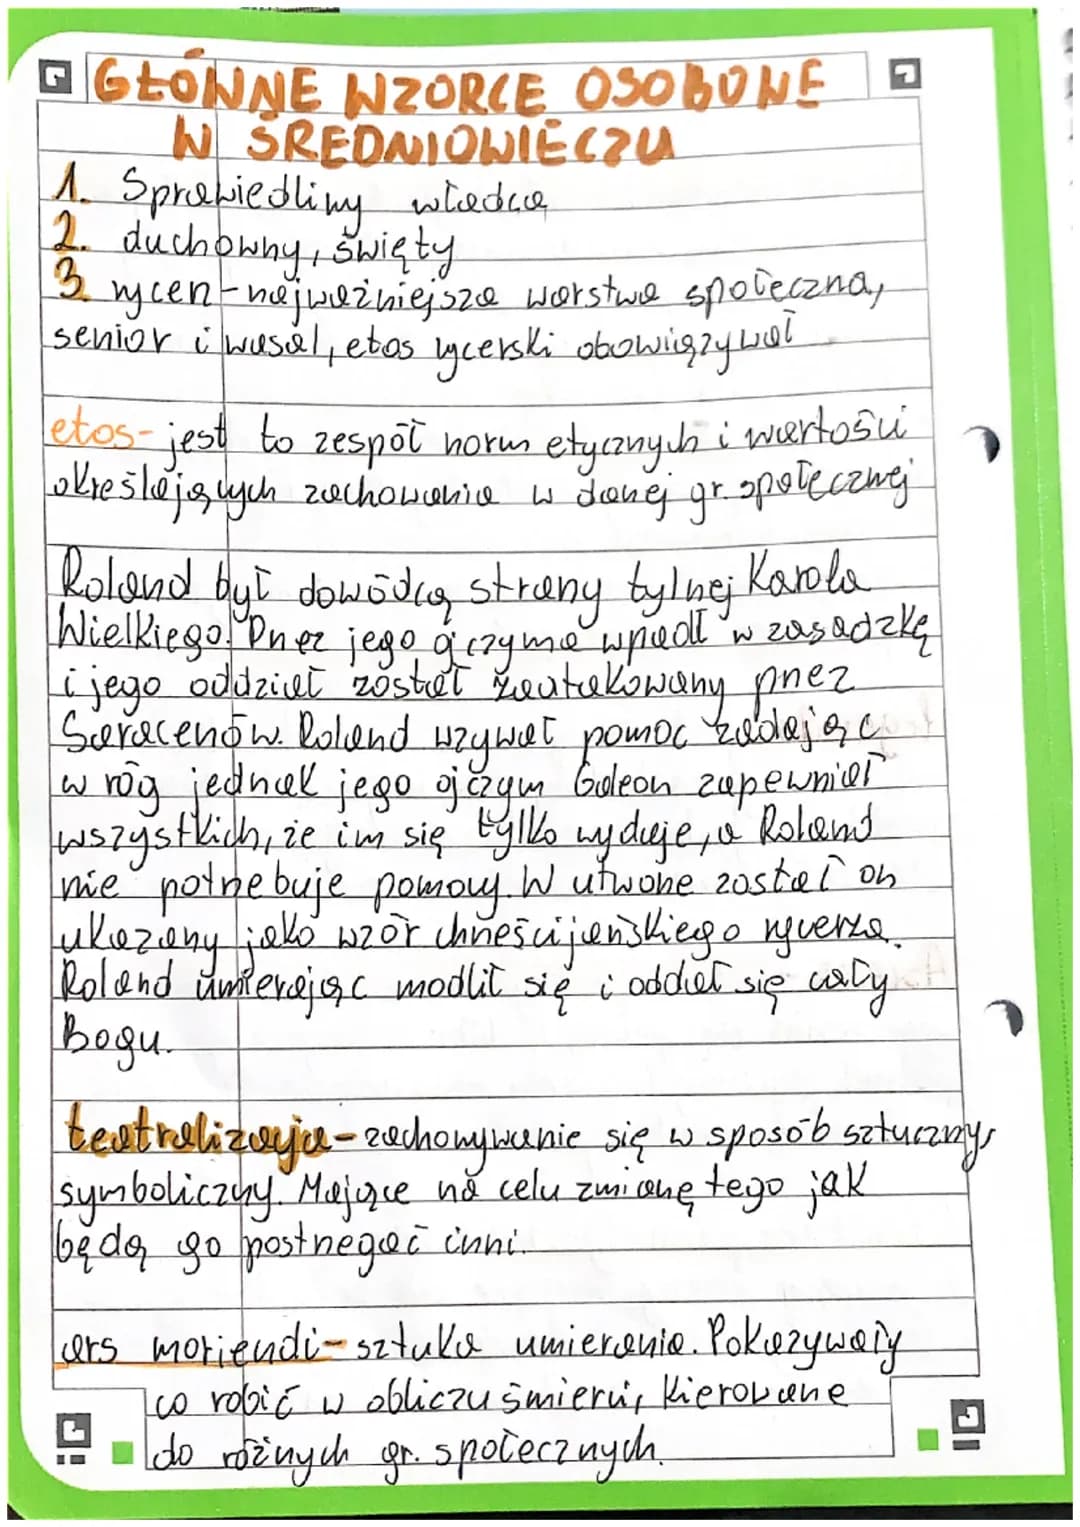 GŁÓWNE WZORCE OSOBOWE
W ŚREDNIOWIECZU
1. Sprawiedliwy władca
2. duchowny, święty
3. rycerz - najważniejsza warstwa społeczna,
senior i wasal, etos rycerski obowiązywał
etos - jest to zespół norm etycznych i wartości
określających zachowania w danej gr. społecznej
Roland był dowódcą strany tylnej Karola
Wielkiego. Przez jego ojczyma wpadł w zasadzkę
i jego oddział został zaatakowany przez
Saracenów. Roland wzywał pomoc zadając
w róg jednak jego ojczym Galeon zapewniał
wszystkich, że im się tylko wydaje, a Roland
nie potrzebuje pomocy. W utworze został on
ukazany jako wzór chrześcijańskiego rycerza.
Roland umierając modlił się i oddał się cały
Bogu.
teatralizacja - zachowywanie się w sposób sztuczny,
symboliczny. Mające na celu zmianę tego jak
będą go postrzegać inni.
ars moriendi - sztuka umierania. Pokazywały
co robić w obliczu śmierci, kierowane
do różnych gr. społecznych.